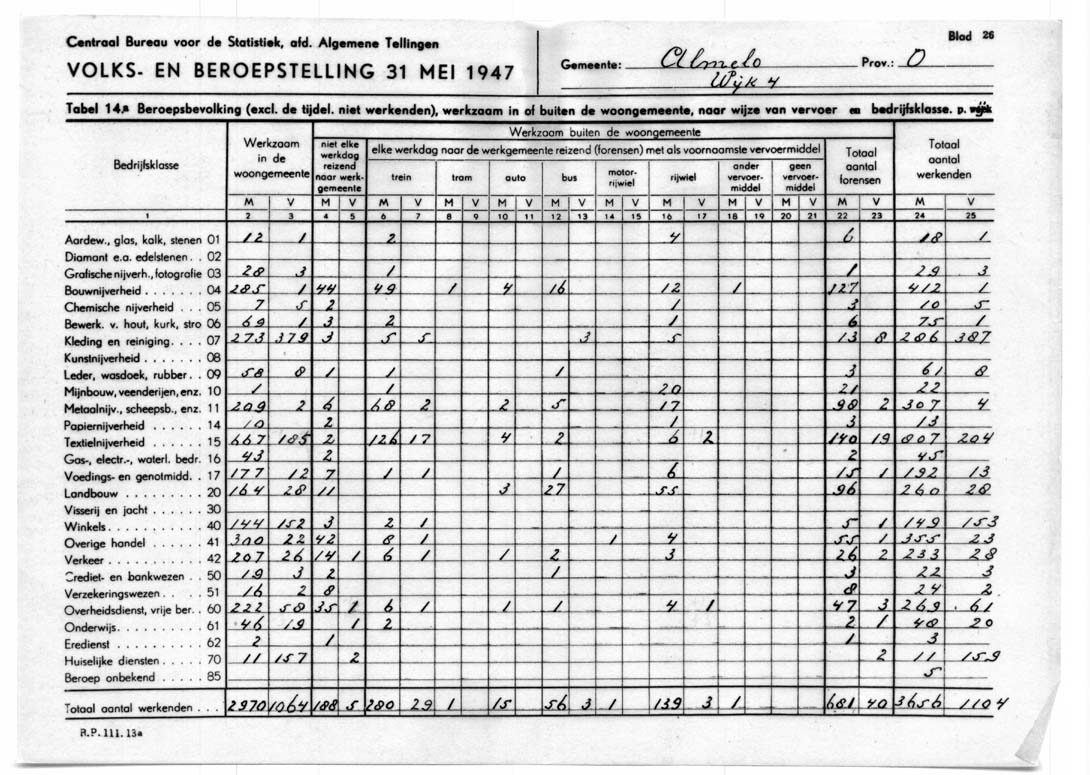 Centraal Bureau voor de Statistiek, afd. Algemene Tellingen
VOLKS- EN BEROEPSTELLING 31 MEI 1947
Gemeente: Almelo Prov.: O
Wijk 4
Blad 26
Tabel 14.a Beroepsbevolking (excl. de tijdel. niet werkenden), werkzaam in of buiten de woongemeente, naar wijze van vervoer en bedrijfsklasse. p. wijk
Bedrijfsklasse
Werkzaam in de woongemeente
Werkzaam buiten de woongemeente
niet elke werkdag reizend naar werkgemeente
elke werkdag naar de werkgemeente reizend (forensen) met als voornaamste vervoermiddel
trein tram auto bus motor-rijwiel rijwiel ander vervoer-middel geen vervoer-middel
Totaal aantal forensen
Totaal aantal werkenden
M V M V M V M V M V M V M V M V M V M V M V M V
1 2 3 4 5 6 7 8 9 10 11 12 13 14 15 16 17 18 19 20 21 22 23 24 25
Aardew., glas, kalk, stenen 01 12 1 2 4 6 18 1
Diamant e.a. edelstenen . . 02
Grafische nijverh., fotografie 03 28 3 1 1 29 3
Bouwnijverheid . . . . . . 04 285 1 44 49 1 4 16 12 1 127 412 1
Chemische nijverheid . . . 05 7 5 2 1 3 10 5
Bewerk. v. hout, kurk, stro 06 69 1 3 2 1 6 75 1
Kleding en reiniging. . . . 07 273 379 3 5 5 3 5 13 8 286 387
Kunstnijverheid . . . . . . 08
Leder, wasdoek, rubber. . 09 58 8 1 1 1 3 61 8
Mijnbouw, veenderijen, enz. 10 1 1 20 21 22
Metaalnijv., scheepsb., enz. 11 209 2 6 68 2 2 5 17 98 2 307 4
Papiernijverheid . . . . . 14 10 2 1 3 13
Textielnijverheid . . . . . 15 667 185 2 126 17 4 2 6 2 140 19 807 204
Gas-, electr., waterl. bedr. 16 43 2 2 45
Voedings- en genotmidd. . 17 177 12 7 1 1 1 6 15 1 192 13
Landbouw . . . . . . . . 20 164 28 11 3 27 55 96 260 28
Visserij en jacht . . . . . 30
Winkels . . . . . . . . . 40 144 152 3 2 1 5 1 149 153
Overige handel . . . . . . 41 300 22 42 8 1 1 4 55 1 355 23
Verkeer . . . . . . . . . 42 207 26 14 1 6 1 1 2 3 26 2 233 28
Crediet- en bankwezen . . 50 19 3 2 1 3 22 3
Verzekeringswezen. . . . . 51 16 2 8 8 24 2
Overheidsdienst, vrije ber. . 60 222 58 35 1 6 1 1 1 4 1 47 3 269 61
Onderwijs. . . . . . . . . 61 46 19 1 2 2 1 48 20
Eredienst . . . . . . . . 62 2 1 1 3
Huiselijke diensten . . . . . 70 11 157 2 2 11 159
Beroep onbekend . . . . . 85 5
Totaal aantal werkenden . . . 2970 1064 188 5 280 29 1 15 56 3 1 139 3 1 681 40 3656 1104
R.P.111.13a